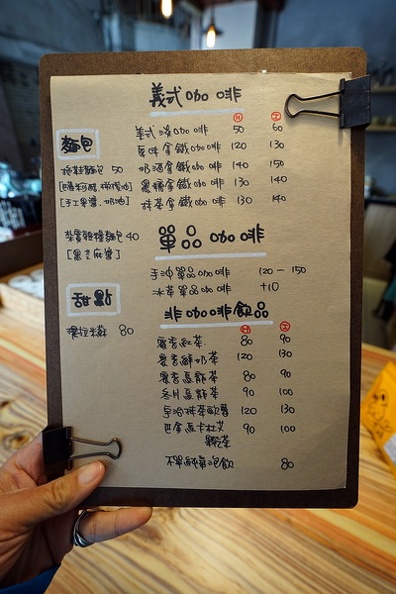 義式咖啡
H 冰
義式濃咖啡 50 60
原味拿鐵咖啡 120 130
奶酒拿鐵咖啡 140 150
黑糖拿鐵咖啡 130 140
抹茶拿鐵咖啡 130 140
麵包
麵包 50
[手工果醬.奶油]
雜糧麵包 40
[黑芝麻醬]
甜點
提拉米蘇 80
單品咖啡
手沖單品咖啡 120 — 150
冰單品咖啡 +10
非咖啡飲品
H 冰
紅茶 80 90
鮮奶茶 120 130
烏龍茶 80 90
冬片烏龍茶 90 100
抹茶歐蕾 120 130
巴拿馬卡杜艾
果乾茶 90 100
冷泡飲 80